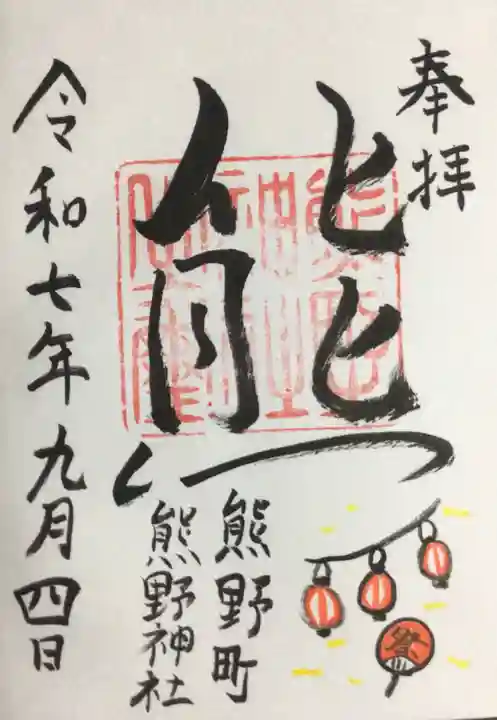 奉拝
熊
熊野町
熊野神社
令和七年九月四日
祭